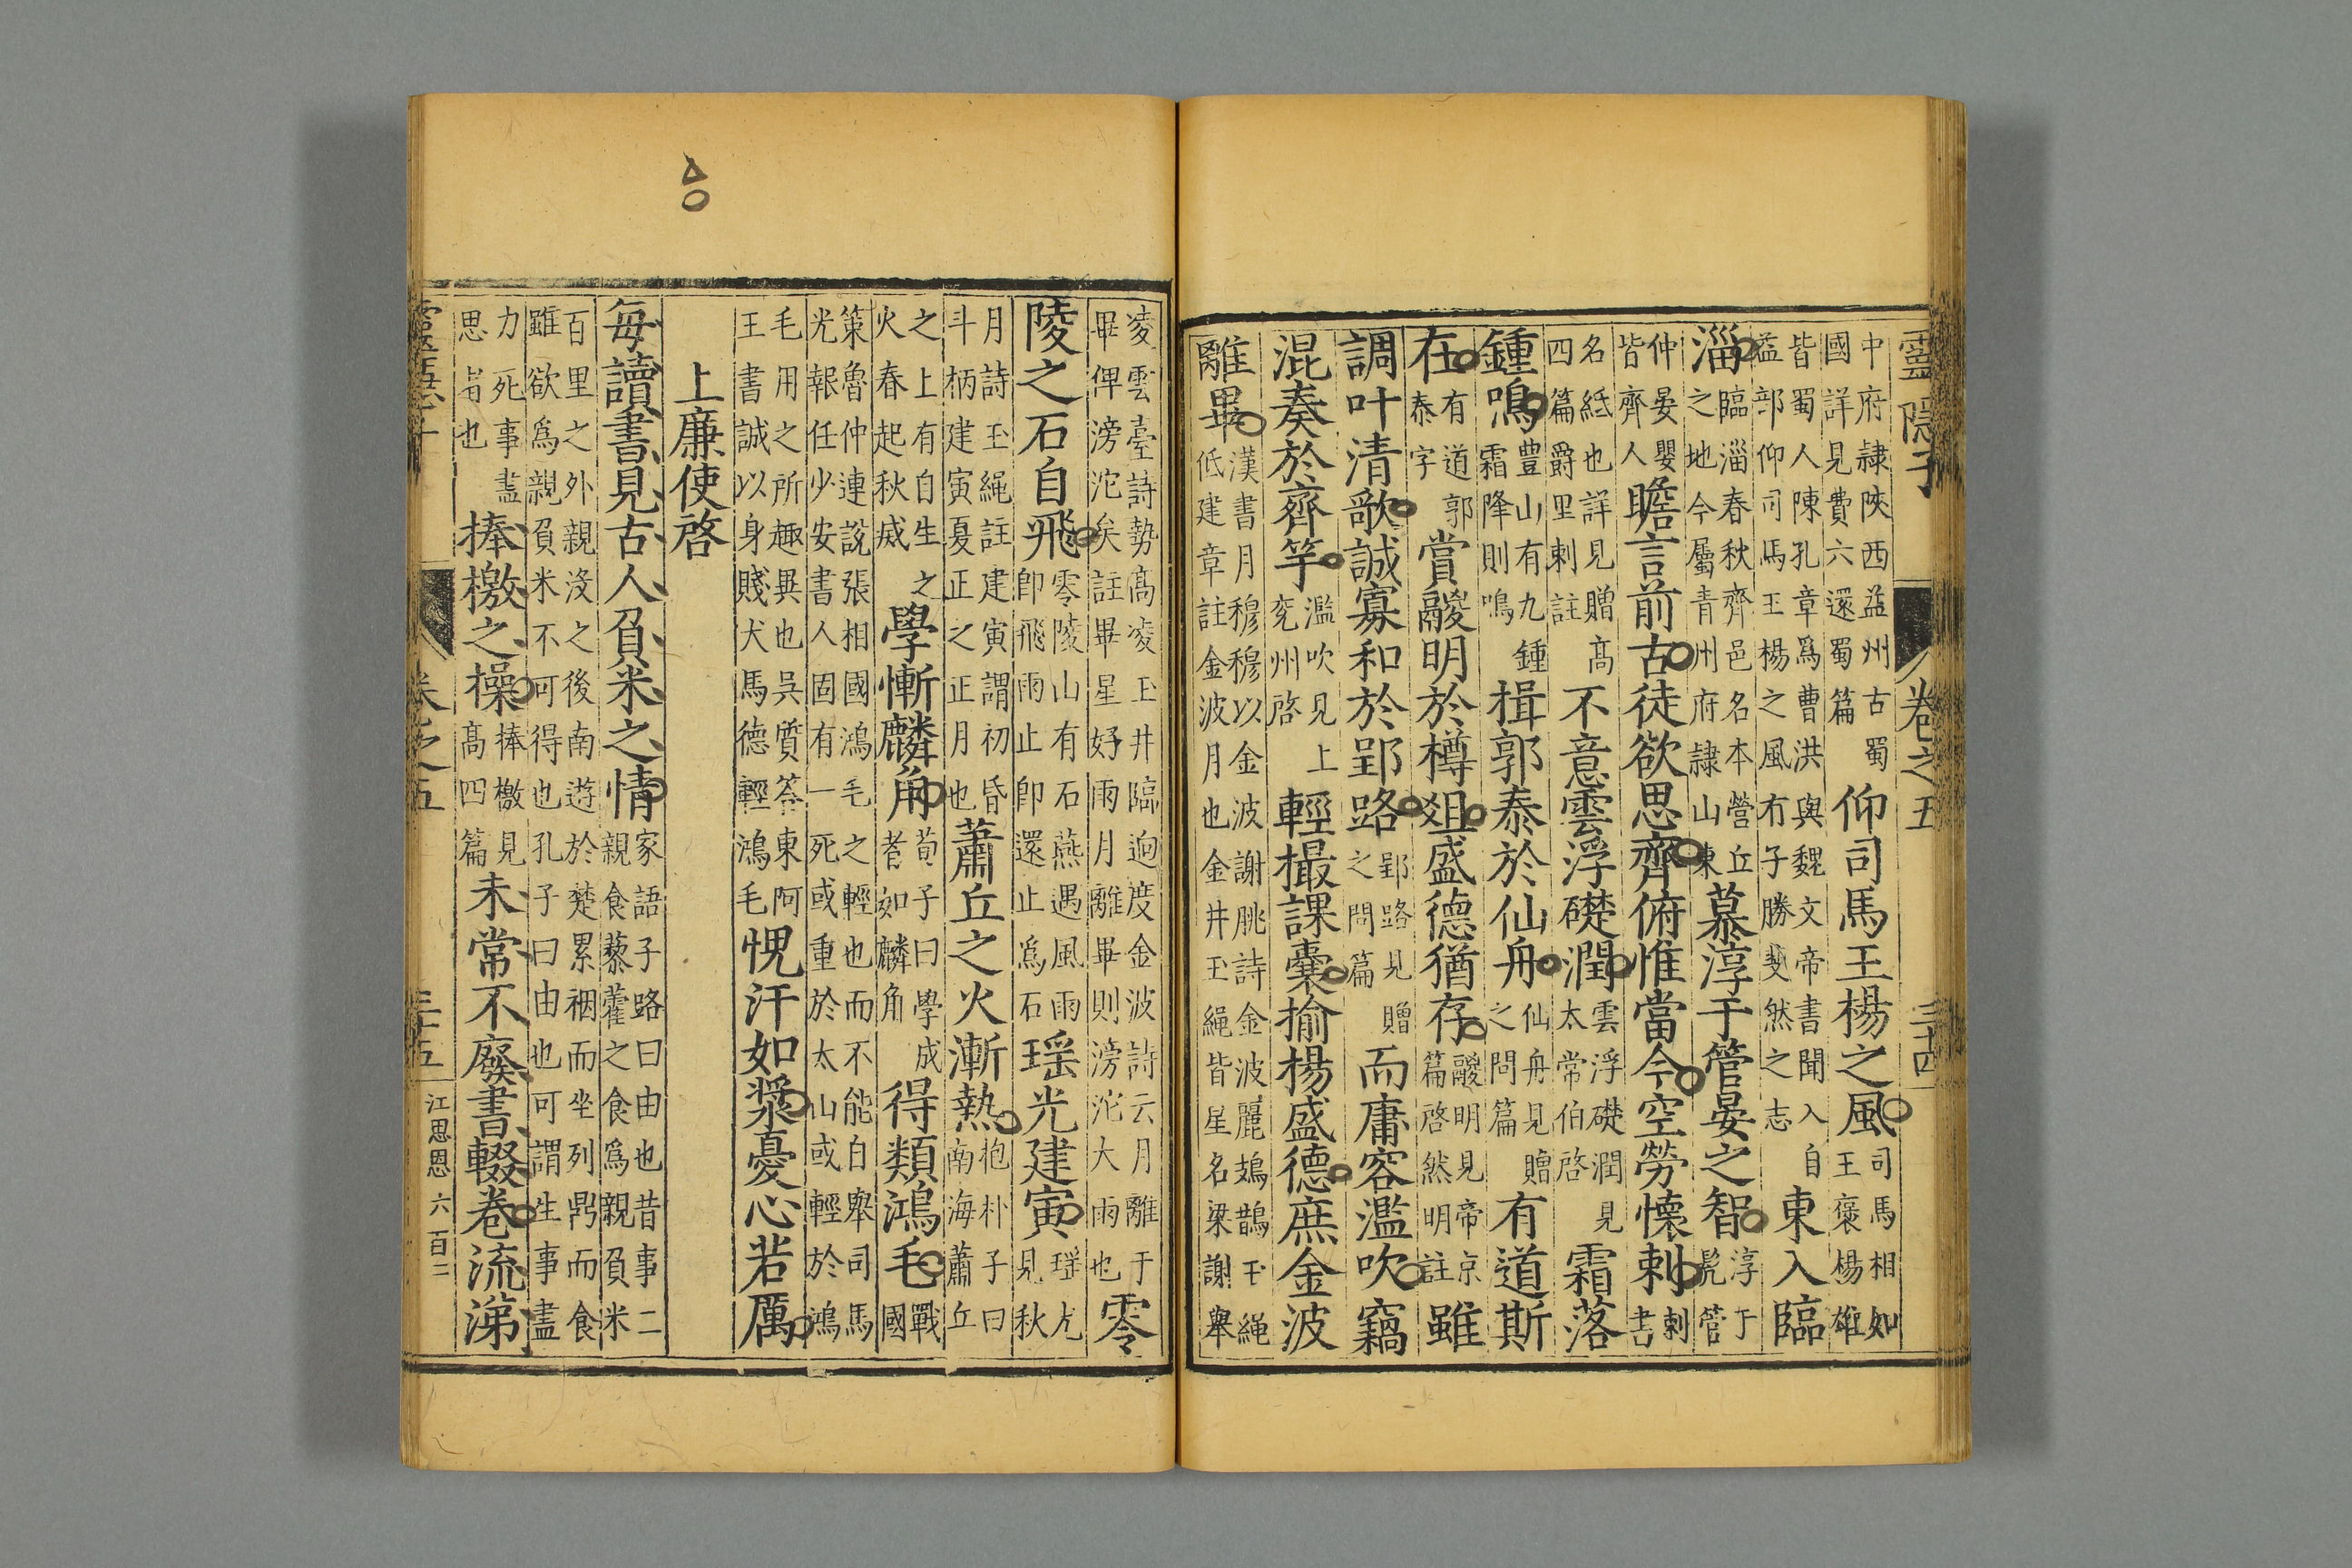 靈隱子 卷之五 三十四
中府隷陝西益州古蜀國詳見費六還蜀篇仰司馬王楊之風司馬相如王褒楊雄
皆蜀人陳孔章爲曹洪與魏文帝書聞入自益部仰司馬王楊之風有子勝斐然之志東入臨
淄臨淄春秋齊邑名本營丘之地今屬青州府隷山東慕淳于管晏之智淳于髡管
仲晏嬰皆齊人瞻言前古徒欲思齊俯惟當今空勞懷刺刺書
名紙也詳見贈高四篇爵里刺註不意雲浮礎潤雲浮礎潤見太常伯啓霜落
鍾鳴豊山有九鍾霜降則鳴揖郭泰於仙舟仙舟見贈之問篇有道斯
在有道郭泰字賞鬷明於樽俎盛德猶存鬷明見帝京篇啓然明註雖
調叶清歌誠寡和於郢路郢路見贈之問篇而庸容濫吹竊
混奏於齊竽濫吹見上兖州啓輕撮課囊揄楊盛德庶金波
離畢漢書月穆穆以金波謝朓詩金波麗鳷鵲玉繩低建章註金波月也金井玉繩皆星名梁謝舉
凌雲臺詩勢高凌玉井臨逈度金波詩云月離于畢俾滂沱矣註畢星好雨月離畢則滂沱大雨也零
陵之石自飛零陵山有石燕遇風雨即飛雨止即還止爲石瑶光建寅瑶光見秋
月詩玉繩註建寅謂初昏斗柄建寅夏正之正月也蕭丘之火漸熱抱朴子曰南海蕭丘
之上有自生之火春起秋滅學慚麟角荀子曰學成者如麟角得類鴻毛戰國
策魯仲連說張相國鴻毛之輕也而不能自舉司馬光報任少安書人固有一死或重於太山或輕於鴻
毛用之所趣異也吳質荅東阿王書誠以身賤犬馬德輕鴻毛愰汗如漿憂心若厲
上廉使啓
每讀書見古人負米之情家語子路曰由也昔事二親食藜藿之食爲親負米
百里之外親沒之後南遊於楚累裀而坐列鼎而食雖欲爲親負米不可得也孔子曰由也可謂生事盡
力死事盡思者也捧檄之操捧檄見高四篇未常不廢書輟卷流涕
靈隱子 卷之五 三十五 江思恩 六百二